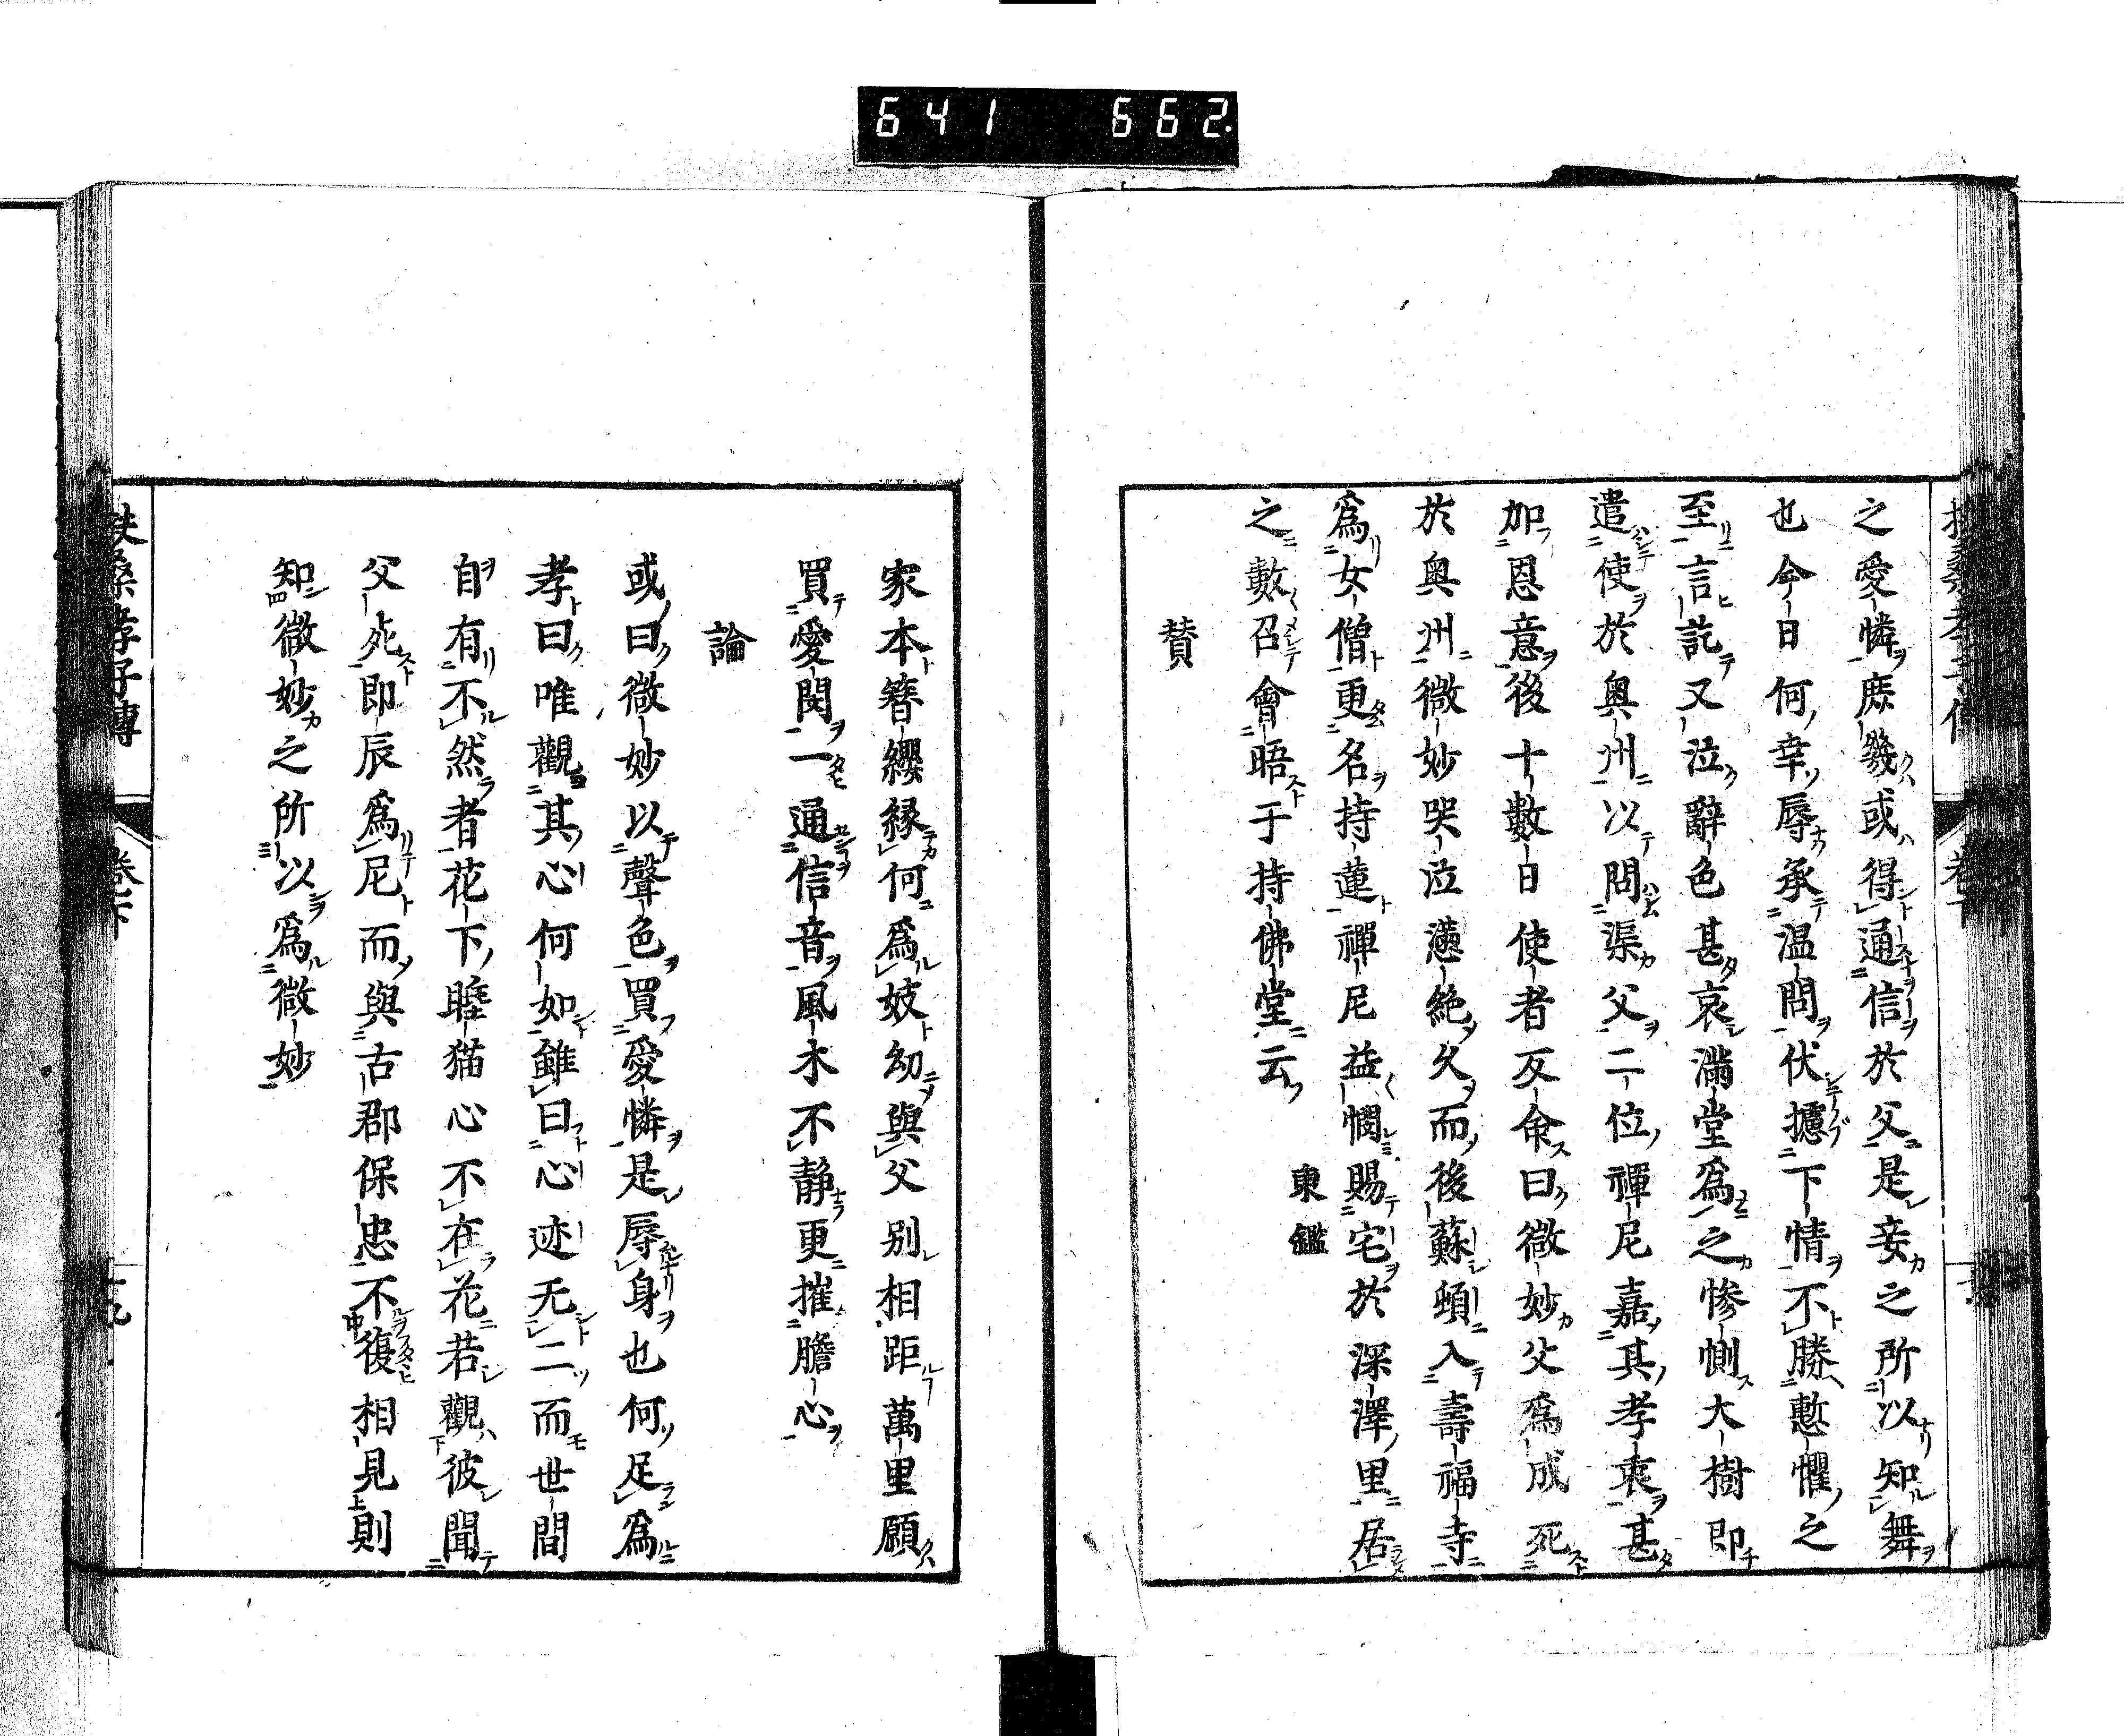 641 662
之愛憐庶幾或得通信於父是妾之所以知舞
也今日何幸辱承温問伏攄下情不勝慙懼之
至言訖又泣辭色甚哀滿堂爲之惨惻大樹即
遣使於奥州以問渠父二位禪尼嘉其孝衷甚
加恩意後十數日使者反命曰微妙父爲成死
於奥州微妙哭泣懣絶久而後蘇頓入壽福寺
爲女僧更名持蓮禪尼益憫賜宅於深澤里居
之數召會晤于持佛堂云
東鑑
賛
家本簪纓縁何爲妓幼與父别相距萬里願
買愛閔一通信音風木不静更摧膽心
論
或曰微妙以聲色買愛憐是辱身也何足爲
孝曰唯觀其心何如雖曰心迹无二而世間
自有不然者花下睡猫心不在花若觀彼聞
父死即辰爲尼而與古郡保忠不復相見則
知微妙之所以爲微妙
扶桑孝子傳 卷下